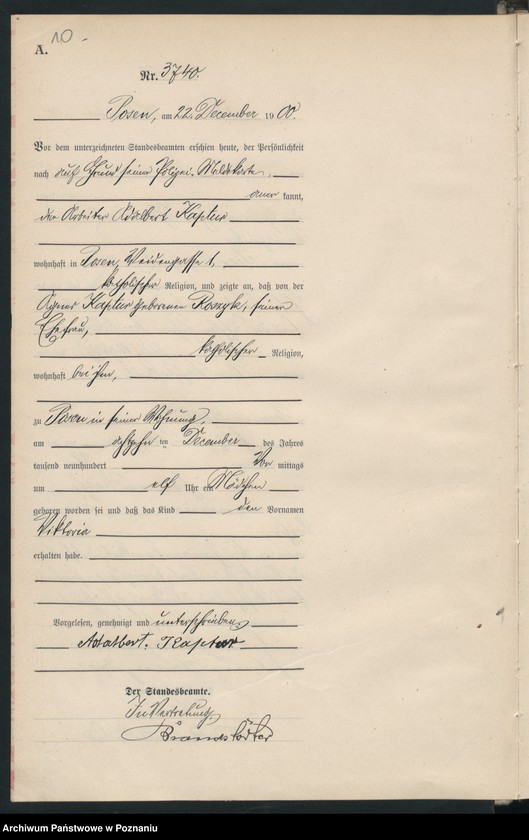 10.
A.
Nr. 3740.
Posen, am 22. December 1900.
Vor dem unterzeichneten Standesbeamten erschien heute, der Persönlichkeit
nach auf Grund seiner Polizei-Meldekarte
anerkannt,
der Arbeiter Adalbert Kaptur
wohnhaft in Posen, Weidengasse 1,
katholischer Religion, und zeigte an, daß von der
Agnes Kaptur geborenen Roszyk, seiner
Ehefrau,
katholischer Religion,
wohnhaft bei ihm,
zu Posen in seiner Wohnung,
am ten December des Jahres
tausend neunhundert Vormittags
um elf Uhr ein Mädchen
geboren worden sei und daß das Kind den Vornamen
Viktoria
erhalten habe.
Vorgelesen, genehmigt und unterschrieben
Adalbert. Kaptur
Der Standesbeamte.
In Vertretung
Brandstädter
Archiwum Państwowe w Poznaniu